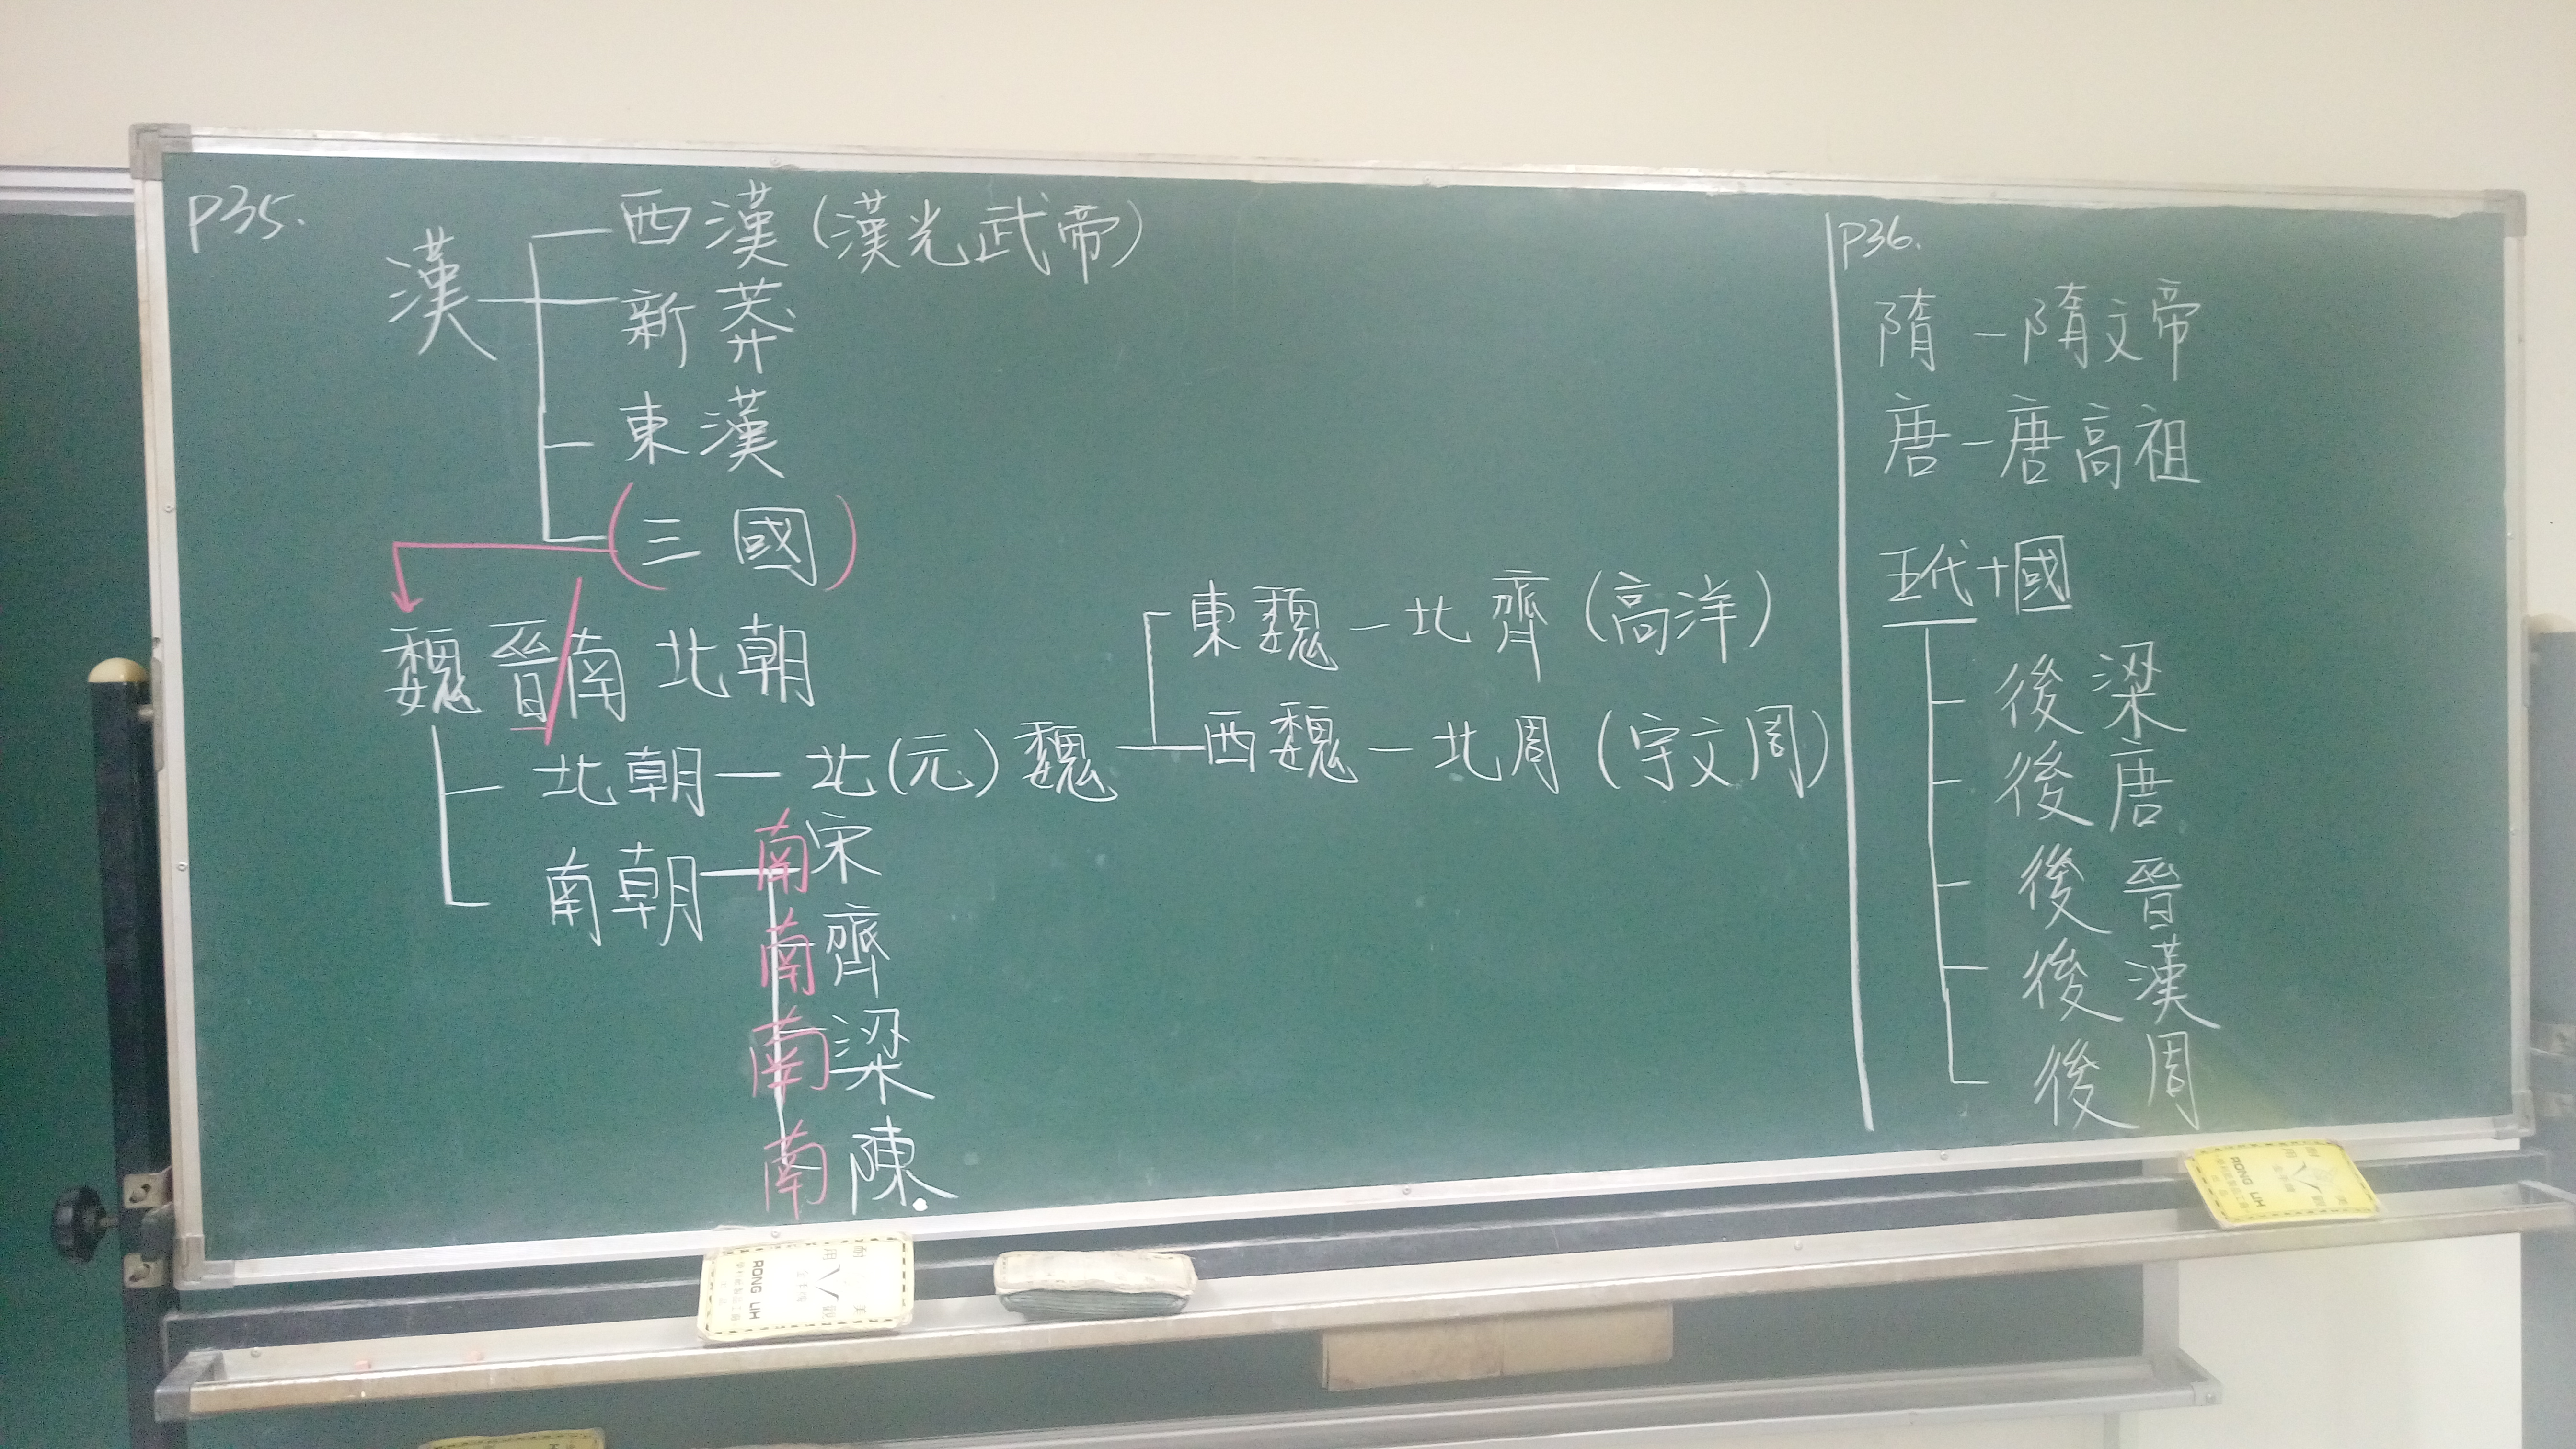 P35.
漢
西漢(漢光武帝)
新莽
東漢
(三國)
魏晉南北朝
北朝—北(元)魏
東魏—北齊(高洋)
西魏—北周(宇文周)
南朝—南宋
南齊
南梁
南陳
P36.
隋—隋文帝
唐—唐高祖
五代十國
後梁
後唐
後晉
後漢
後周
RONG LIH
RONG LIH